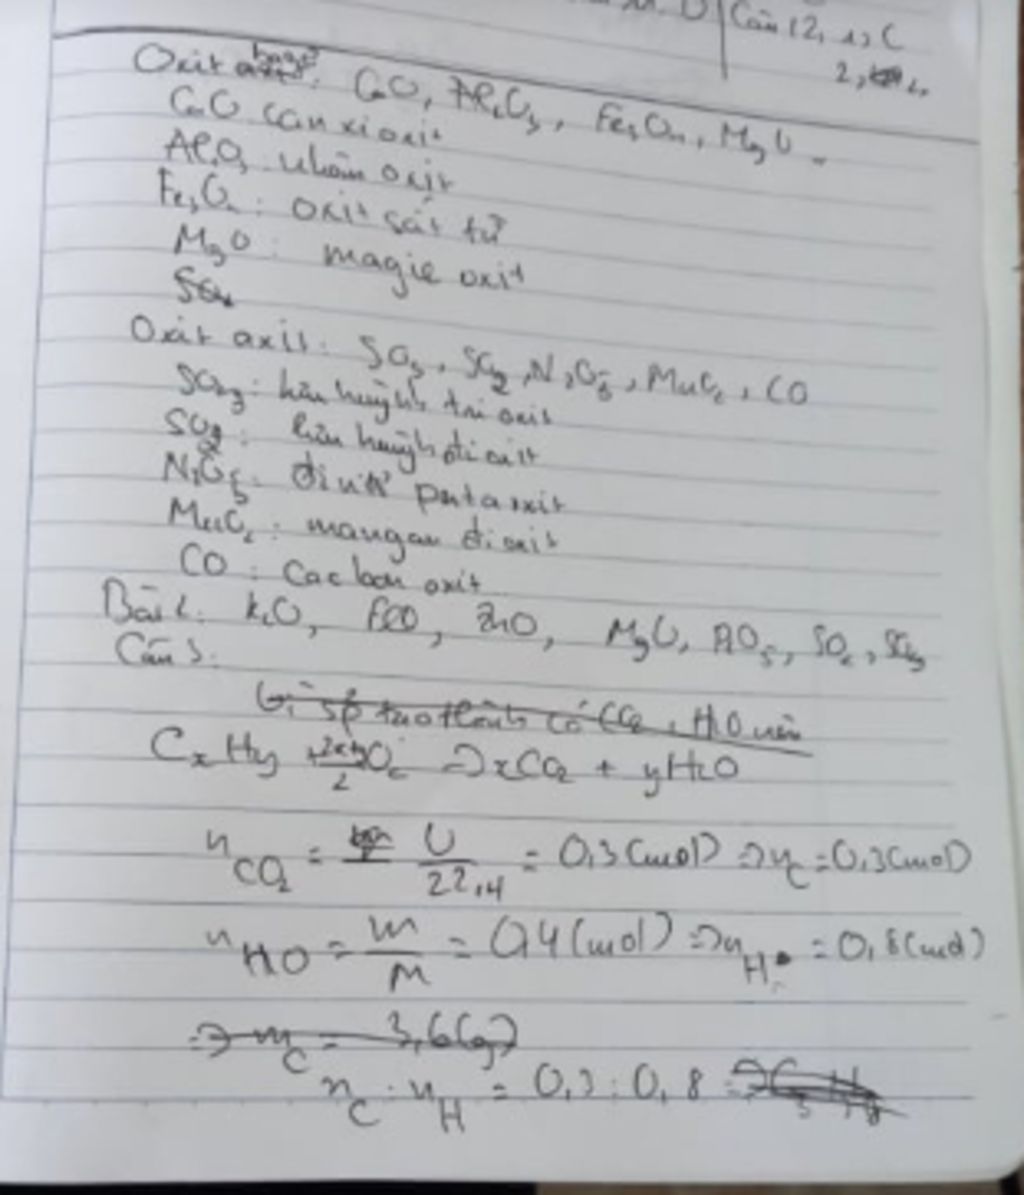 Câu 12, 1, C
2,
Oxit bazơ: CaO, Al2O3, Fe3O4, MgO
CaO canxi oxit
Al2O3 nhôm oxit
Fe3O4: oxit sắt từ
MgO: magie oxit
Oxit axit: SO3, SO2, N2O5, MnO2, CO
SO3: lưu huỳnh tri oxit
SO2: lưu huỳnh đi oxit
N2O5: đi nitơ pentaoxit
MnO2: mangan đi oxit
CO: cacbon oxit
Bài 2: K2O, FeO, ZnO, MgO, SO2, SO3
Câu 3:
Vì sp tạo thành có CO2, H2O nên
CxHy + O2 => xCO2 + yH2O
nCO2 = V/22,4 = 0,3 (mol) => nC = 0,3 (mol)
nHO = m/M = 0,4 (mol) => nH = 0,8 (mol)
=> mC = 3,6 (g)
nC : nH = 0,3 : 0,8